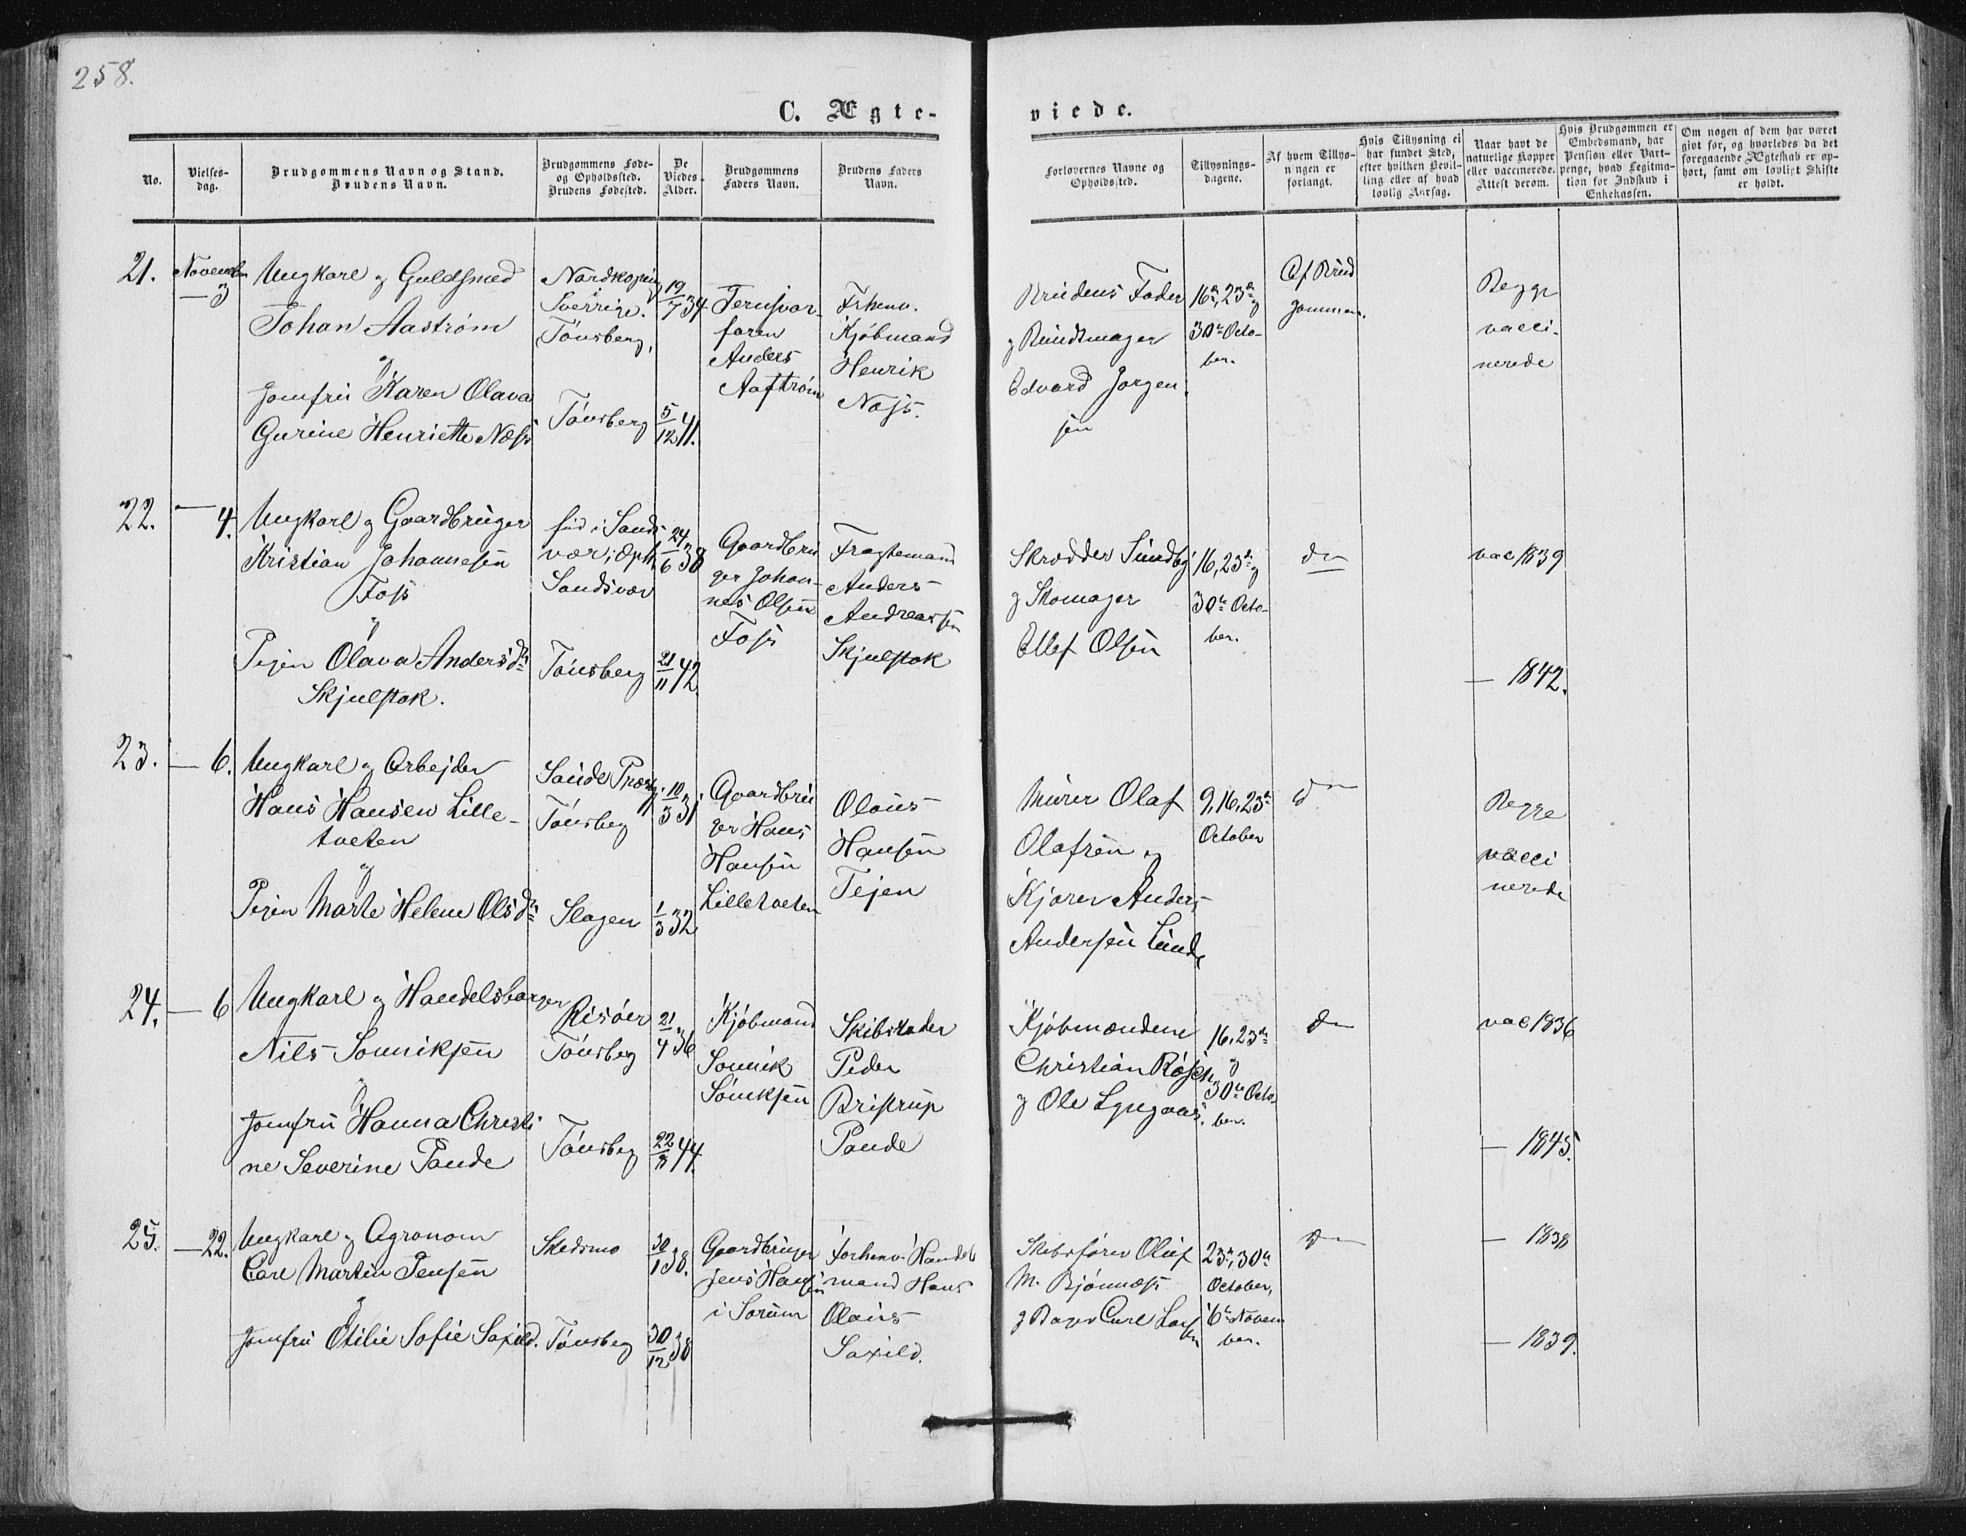 258.
C. Ægte-
viede.
No.
Vielses-
dag.
Brudgommens Navn og Stand.
Brudens Navn.
Brudgommens Føde-
og Opholdssted.
Brudens Fødested.
De
Viedes
Alder.
Brudgommens
Faders Navn.
Brudens Faders
Navn.
Forlovernes Navne og
Opholdssted.
Tillysnings-
dagene.
Af hvem Tillys-
ningen er
forlangt.
Hvis Tillysning ei
har fundet Sted,
efter hvilken Bevil-
ling eller af hvad
lovlig Aarsag.
Naar havt de
naturlige Kopper
eller vaccinerede.
Attest derom.
Hvis Brudgommen er
Embedsmand, har
Pension eller Vart-
penge, hvad Legitima-
tion for Indskud i
Enkekassen.
Om nogen af dem har været
givt før, og hvorledes da det
foregaaende Ægteskab er op-
hørt, samt om lovligt Skifte
er holdt.
21.
November
— 3
Ungkarl og Guldsmed
Johan Aastrøm
og
Jomfru Karen Olava
Gurine Henriette Næss
Nordkøping
Sverrige.
Tønsberg,
Tønsberg
19/7 34
5/12 41.
faren
Anders
Aastrøm
Kjøbmand
Henrik
Brudens Fader
og Buntmager
Edvard Jørgen
sen
16de, 23de og
30te Octo-
ber.
Af Brud
gommen.
Begge
vacci-
nerede
22.
— 4.
Ungkarl og Gaardbruger
Kristian Johannesen
Foss
og
Pigen Olava Andersdtr
Skjulstok.
fød i Sands
vær, Oph.
Sandsvær
Tønsberg
24/6 38
21/11 42.
Gaardbru
ger Johan-
nes Olsen
Foss
Fragtemand
Anders
Andreassen
Skjulstok
Skrædder Sundby
og Skomager
Ellef Olsen
16, 23de og
30te Octo-
ber.
do
vac 1839
— 1842.
23.
— 6.
Ungkarl og Arbejder
Hans Hansen Lille-
tveten
og
Pigen Marte Helene Olsdtr
Sande Præstg.
Tønsberg
Slagen
10/3 31
1/3 32
Gaardbru
ger Hans
Hansen
Lilletveten
Olaus
Hansen
Tejen
Murer Olaf
Olafsen og
Kjører Anders
Andersen Lunde
9, 16, 23de
October
do
Begge
vacci
nerede
24.
— 6
Ungkarl og Handelsborger
Nils Sønniksen
og
Jomfru Hanna Christi
ne Severine Paude
Risøer
Tønsberg
Tønsberg
21/4 36
22/3 44.
Kjøbmand
Sønnik
Sønniksen
Skibsreder
Peder
Bristrup
Paude
Kjøbmændene
Christian Røsch
og Ole Lyngaas.
16, 23de
og
30te Octo-
ber.
do
vac 1836
— 1845.
25.
— 22.
Ungkarl og Agronom
Carl Martin Jensen
og
Jomfru Otilie Sofie Saxild.
Skedsmo
Tønsberg
30/1 38.
30/12 38
Gaardbruger
Jens Hansen
i Sørum
Forhenv. Handels
mand Hans
Olaus
Saxild.
Skibsfører Oluf
M. Bjønnæss
og Bager Carl Larsen
23de, 30te
October,
6te Novem
ber.
do
— 1838
— 1839.